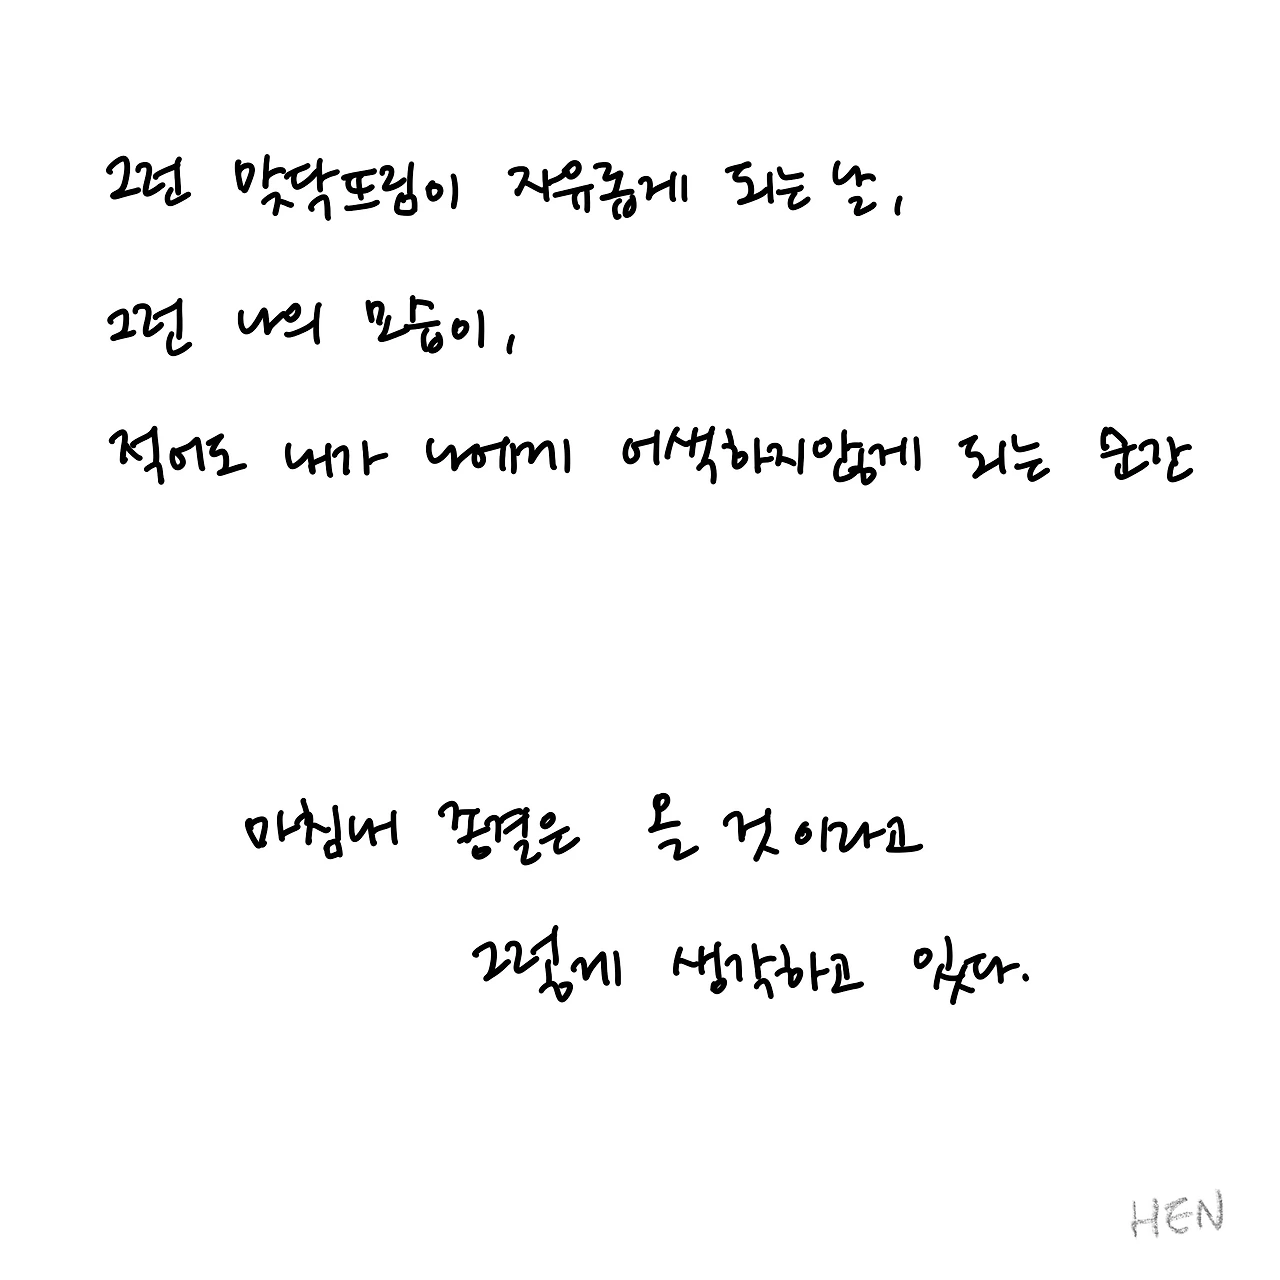 그런 맞닥뜨림이 자유롭게 되는 날,
그런 나의 모습이,
적어도 내가 나에게 어색하지않게 되는 순간
마침내 종결은 올 것이라고
그렇게 생각하고 있다.
HEN